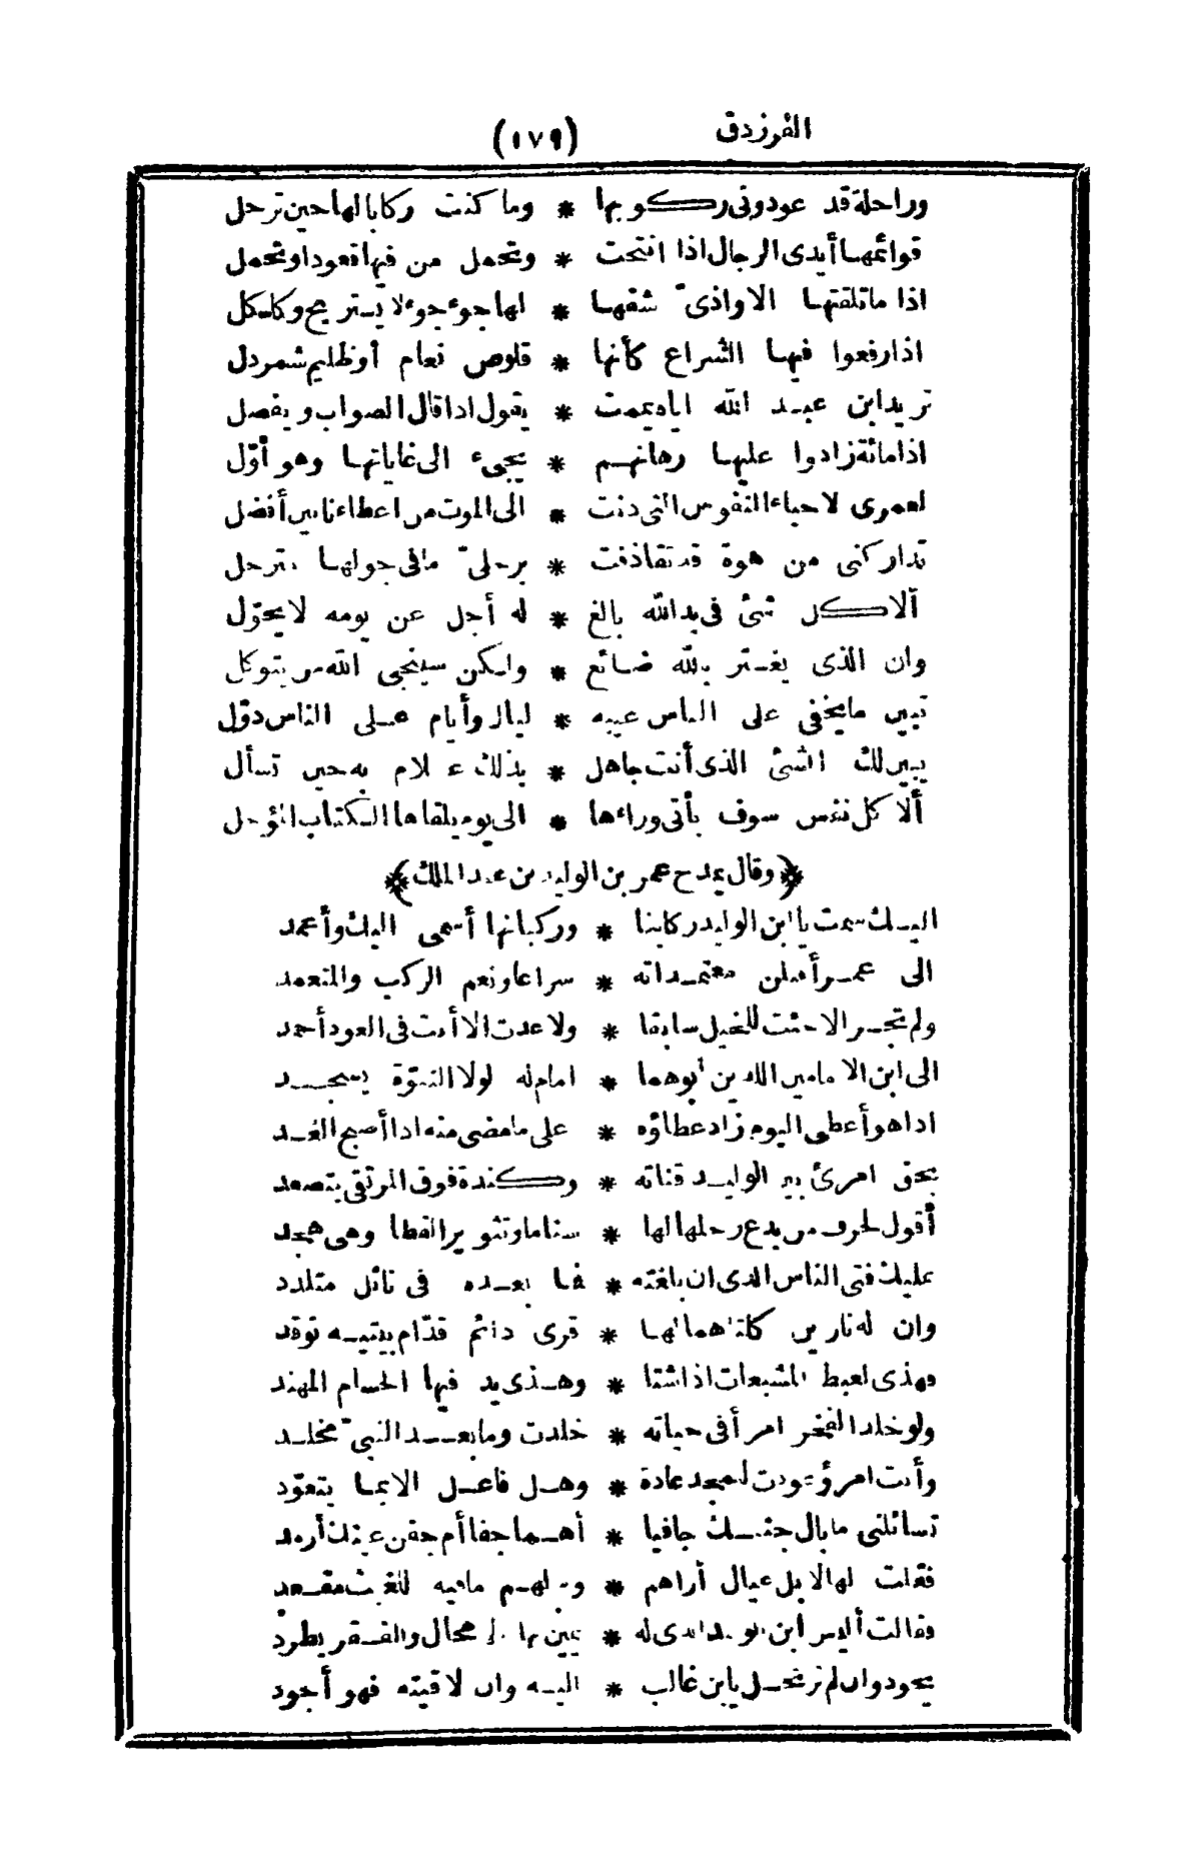 الفرزدق (١٧٩)
وراحلة قد عودونى ركوبها * وما كنت ركابا لها حين ترحل
قوائمها أيدى الرجال اذا انتحت * وتحمل من فيها قعودا وتحمل
اذا ما تلقتها الاواذىّ شقها * لها جوء جوء لا يستريح وكلكل
اذا رفعوا فيها الشراع كأنها * قلوص نعام أو ظليم شمردل
تريد ابن عبد الله اياه يممت * يقول اذا قال الصواب ويفصل
اذا مائة زادوا عليها رهانهم * يجىء الى غاياتها وهو أوّل
لعمرى لاحياء النفوس التى دنت * الى الموت من اعطاء نابين أفضل
تداركنى من هوة قد تقاذفت * برجلىّ ما فى جولها مترحل
ألا كل شئ فى يد الله بالغ * له أجل عن يومه لا يحوّل
وان الذى يغتر بالله ضائع * ولكن سينجى الله من يتوكل
تبين ما يخفى على الناس غيبه * ليال وأيام على الناس دوّل
يبين لك الشئ الذى أنت جاهل * بذلك علام به حين تسأل
ألا كل نفس سوف يأتى وراءها * الى يوم يلقاها الكتاب المؤجل
﴿وقال يمدح عمر بن الوليد بن عبد الملك﴾
اليك سمت يا ابن الوليد ركابنا * وركبانها أسمى اليك وأعمد
الى عمر أقبلن معتمداته * سراعا ونعم الركب والمتعمد
ولم تجر الا جئت للخيل سابقا * ولا عدت الا أنت فى العود أحمد
الى ابن الامامين اللذين أبوهما * امام له لولا النبوّة يسجد
اذا هو أعطى اليوم زاد عطاؤه * على ما مضى منه اذا أصبح الغد
بحق امرئ بين الوليد قناته * وكندة فوق المرتقى يتصعد
أقول لحرف لم يدع رحلها لها * سناما وتثوير القطا وهى هجد
عليك فتى الناس الذى ان بلغته * فما بعده فى نائل متلدد
وان له نارين كلتاهما لها * قرى دائم قدّام بيتيه توقد
فهذى لعبط المشبعات اذا شتا * وهذى يد فيها الحسام المهند
ولو خلد الفخر امرأ فى حياته * خلدت وما بعد النبىّ مخلد
وأنت امرؤ عودت للمجد عادة * وهل فاعل الا بما يتعوّد
تسائلنى ما بال جنبك جافيا * أهم جفا أم جفن عينك أرمد
فقلت لها لا بل عيال أراهم * ومالهم ما فيه للغيث مقعد
فقالت أليس ابن الوليد الذى له * يمين بها الامحال والفقر يطرد
يجود وان لم ترتحل يا ابن غالب * اليه وان لاقيته فهو أجود